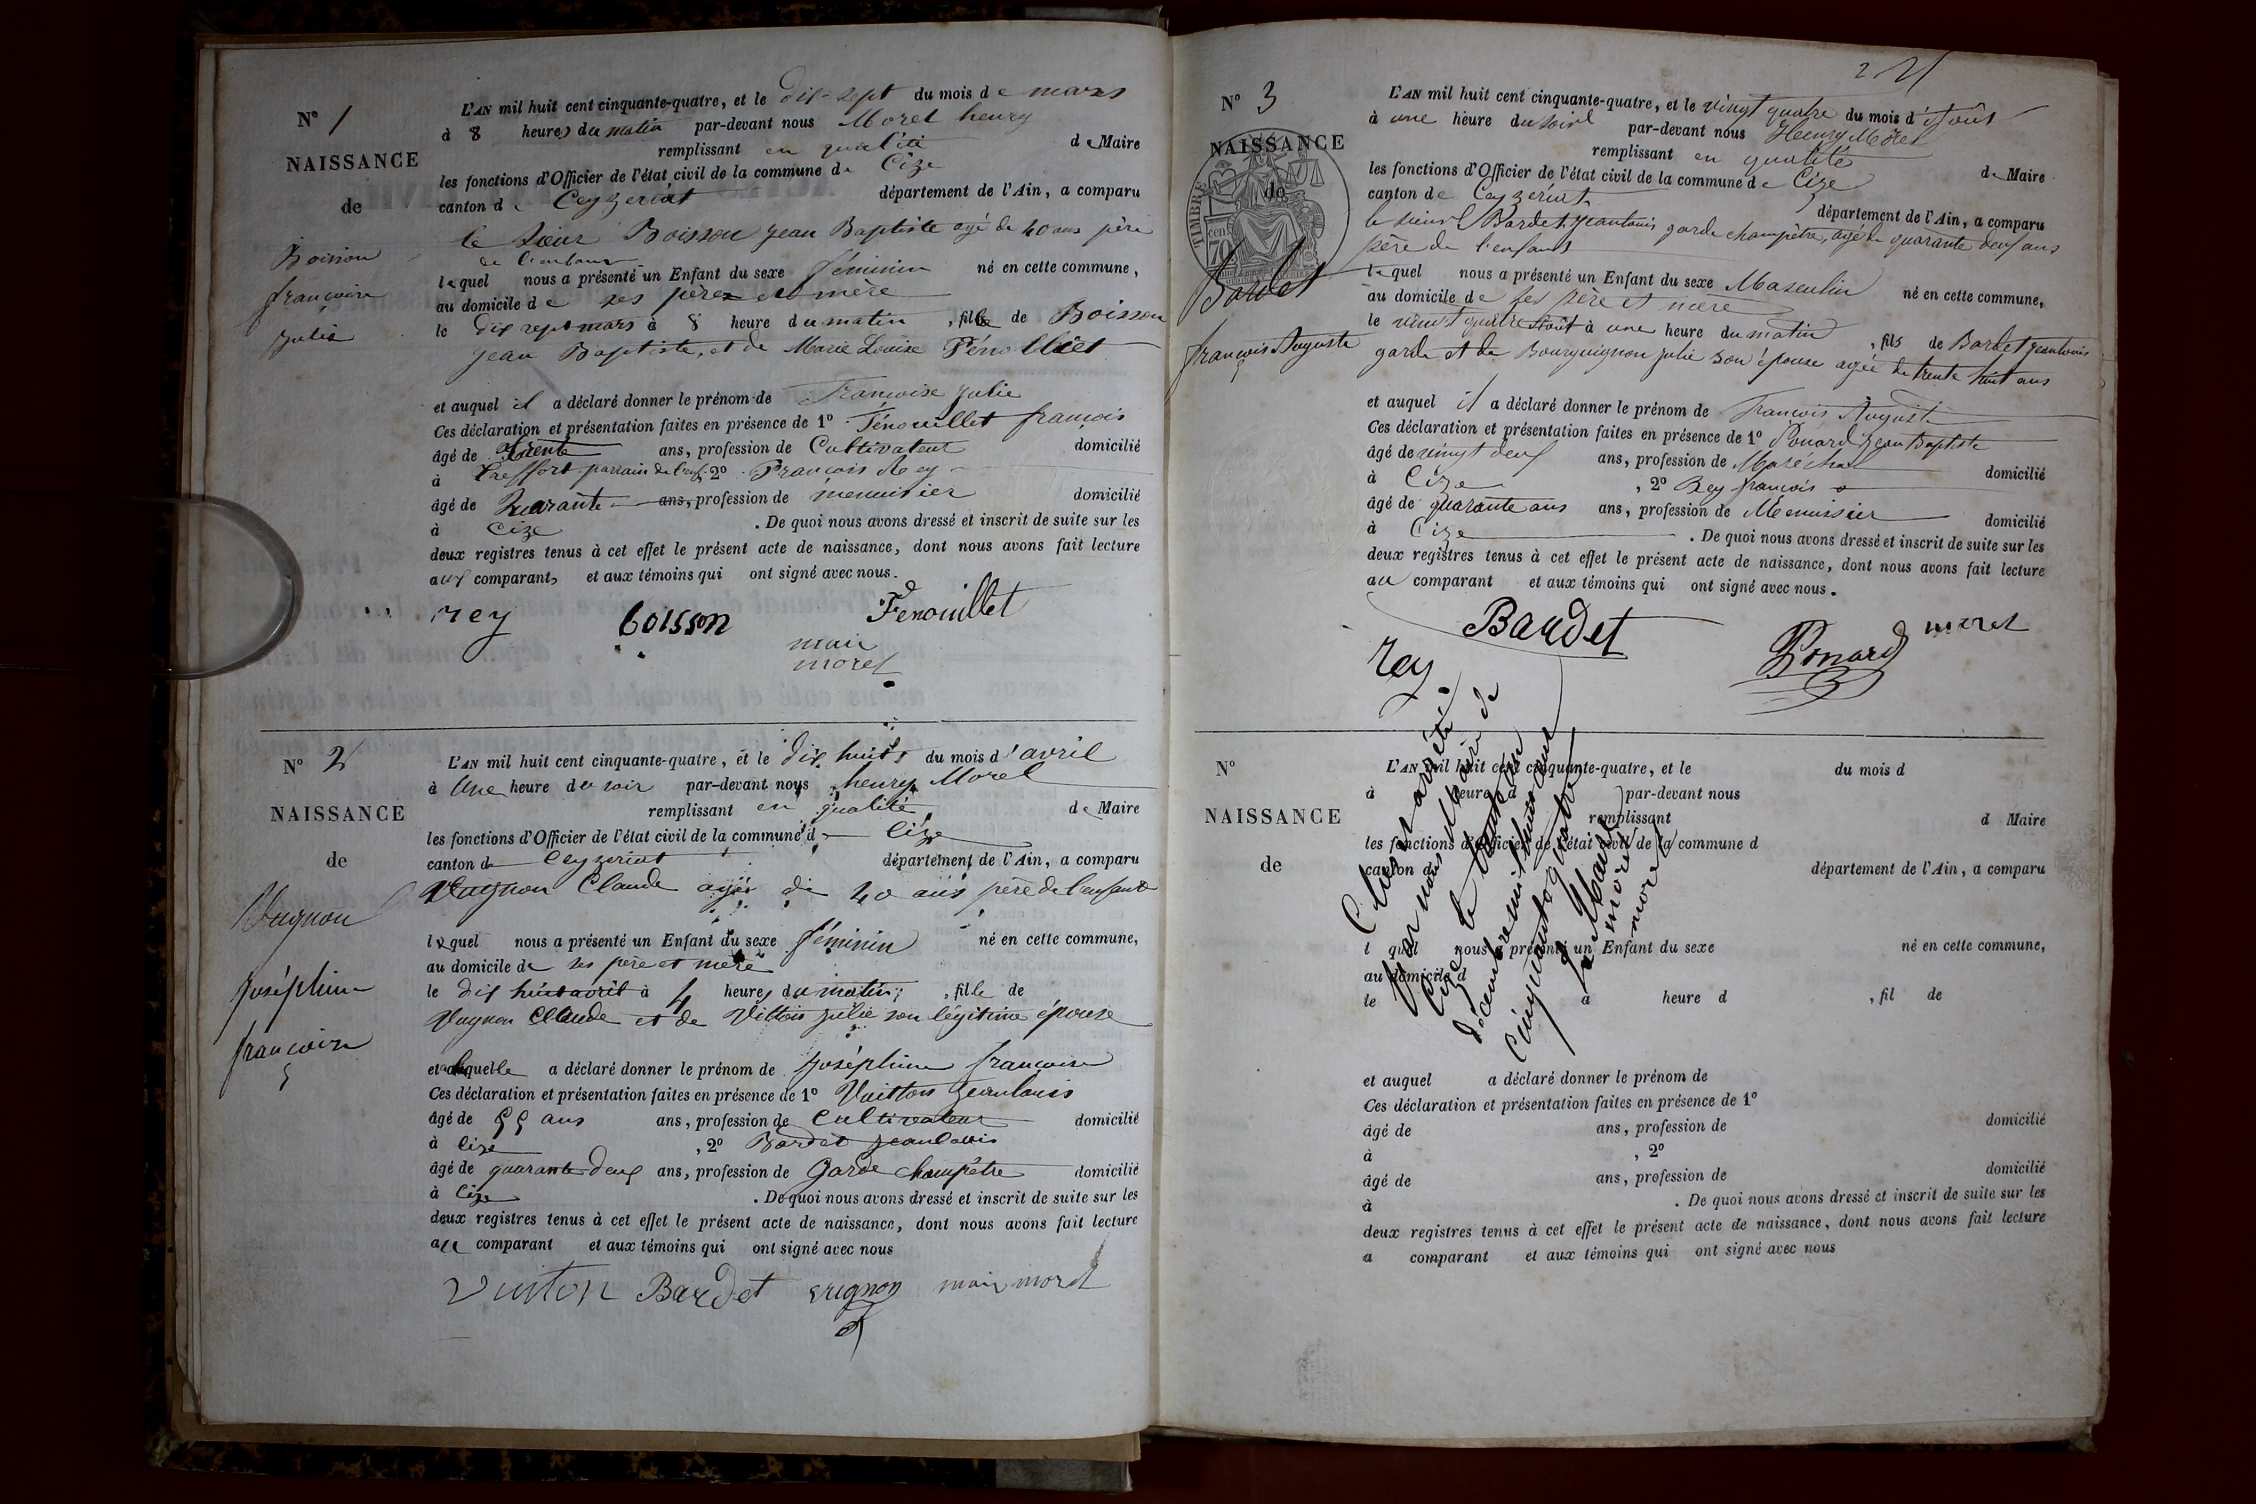 N° 1
NAISSANCE
de
Boisson
françoise
julie
L'AN mil huit cent cinquante-quatre, et le dix-sept du mois de mars
à 8 heures du matin par-devant nous Morel henry
remplissant en qualité de Maire
les fonctions d'Officier de l'état civil de la commune de Cize
canton de Ceyzeriat département de l'Ain, a comparu
le sieur Boisson jean Baptiste agé de 40 ans père
de l'enfant
lequel nous a présenté un Enfant du sexe féminin né en cette commune,
au domicile de ses père et mère
le dix sept mars à 8 heure du matin, fille de Boisson
jean Baptiste, et de Marie Louise Fénouillet
et auquel il a déclaré donner le prénom de Francoise julie
Ces déclaration et présentation faites en présence de 1° Fénouillet françois
âgé de trente ans, profession de Cultivateur domicilié
à Treffort parrain de l'enf. 2° Francois Rey
âgé de quarante ans, profession de menuisier domicilié
à Cize. De quoi nous avons dressé et inscrit de suite sur les
deux registres tenus à cet effet le présent acte de naissance, dont nous avons fait lecture
aux comparants et aux témoins qui ont signé avec nous.
rey boisson Fenouillet
maire
morel
N° 2
NAISSANCE
de
Vugnon
joséphine
francoise
L'AN mil huit cent cinquante-quatre, et le dix huit du mois d'avril
à Une heure du soir par-devant nous henry Morel
remplissant en qualité de Maire
les fonctions d'Officier de l'état civil de la commune d Cize
canton de Ceyzeriat département de l'Ain, a comparu
Vugnon Claude agés de 40 ans père de l'enfant
lequel nous a présenté un Enfant du sexe féminin né en cette commune,
au domicile de ses père et mère
le dix huit avril à 4 heures du matin, fille de
Vugnon Claude et de Vitton julie son légitime épouse
et laquelle a déclaré donner le prénom de joséphine francoise
Ces déclaration et présentation faites en présence de 1° Vuitton jeanlouis
âgé de 55 ans ans, profession de Cultivateur domicilié
à Cize, 2° Bardet jeanlouis
âgé de quarante deux ans, profession de Garde champêtre domicilié
à Cize. De quoi nous avons dressé et inscrit de suite sur les
deux registres tenus à cet effet le présent acte de naissance, dont nous avons fait lecture
au comparant et aux témoins qui ont signé avec nous
Vuiton Bardet vugnon maire morel
2
N° 3
NAISSANCE
de
TIMBRE
70 cent
Bardet
françois Auguste
L'AN mil huit cent cinquante-quatre, et le vingt quatre du mois d'Août
à une heure du soir par-devant nous Henry Morel
remplissant en qualité de Maire
les fonctions d'Officier de l'état civil de la commune de Cize
canton de Ceyzeriat département de l'Ain, a comparu
le sieur Bardet jeanlouis garde champêtre, agé de quarante deux ans
père de l'enfant
lequel nous a présenté un Enfant du sexe Masculin né en cette commune,
au domicile de ses père et mère
le vingt quatre Août à une heure du matin, fils de Bardet jeanlouis
garde et de Bourguignon julie son épouse agée de trente huit ans
et auquel il a déclaré donner le prénom de François Auguste
Ces déclaration et présentation faites en présence de 1° Ponard jean Baptiste
âgé de vingt deux ans, profession de Maréchal domicilié
à Cize, 2° Rey françois
âgé de quarante ans ans, profession de Menuisier domicilié
à Cize. De quoi nous avons dressé et inscrit de suite sur les
deux registres tenus à cet effet le présent acte de naissance, dont nous avons fait lecture
au comparant et aux témoins qui ont signé avec nous.
Bardet
rey Ponard morel
N°
NAISSANCE
de
L'AN mil huit cent cinquante-quatre, et le du mois d
à heure d par-devant nous
remplissant d Maire
les fonctions d'Officier de l'état civil de la commune d
canton d département de l'Ain, a comparu
l quel nous a présenté un Enfant du sexe né en cette commune,
au domicile d
le à heure d, fil de
et auquel a déclaré donner le prénom de
Ces déclaration et présentation faites en présence de 1°
âgé de ans, profession de domicilié
à, 2°
âgé de ans, profession de domicilié
à. De quoi nous avons dressé et inscrit de suite sur les
deux registres tenus à cet effet le présent acte de naissance, dont nous avons fait lecture
a comparant et aux témoins qui ont signé avec nous
Clos et arrêté
par nous Maire de
Cize le
décembre mil huit cent
cinquante quatre
Le Maire
morel
morel